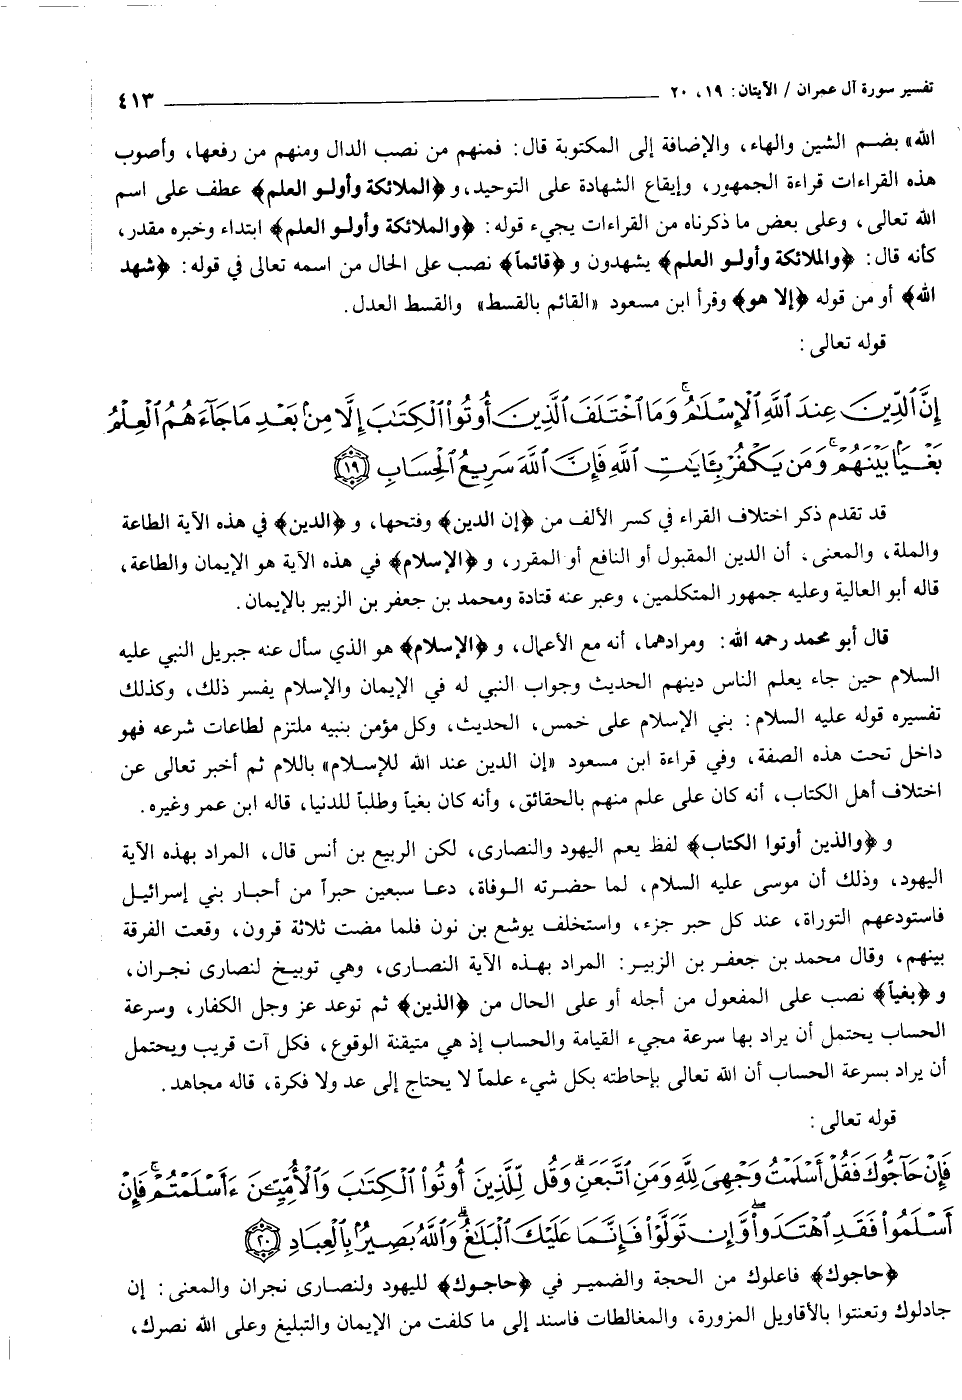 تفسير سورة آل عمران / الآيتان: ١٩، ٢٠ ــــــ ٤١٣
الله» بضم الشين والهاء، والإضافة إلى المكتوبة قال: فمنهم من نصب الدال ومنهم من رفعها، وأصوب
هذه القراءات قراءة الجمهور، وإيقاع الشهادة على التوحيد، و ﴿الملائكة وأولو العلم﴾ عطف على اسم
الله تعالى، وعلى بعض ما ذكرناه من القراءات يجيء قوله: ﴿والملائكة وأولو العلم﴾ ابتداء وخبره مقدر،
كأنه قال: ﴿والملائكة وأولو العلم﴾ يشهدون و ﴿قائماً﴾ نصب على الحال من اسمه تعالى في قوله: ﴿شهد
الله﴾ أو من قوله ﴿إلا هو﴾ وقرأ ابن مسعود «القائم بالقسط» والقسط العدل.
قوله تعالى:
إِنَّ الدِّينَ عِندَ اللَّهِ الْإِسْلَامُ ۗ وَمَا اخْتَلَفَ الَّذِينَ أُوتُوا الْكِتَابَ إِلَّا مِن بَعْدِ مَا جَاءَهُمُ الْعِلْمُ
بَغْيًا بَيْنَهُمْ ۗ وَمَن يَكْفُرْ بِآيَاتِ اللَّهِ فَإِنَّ اللَّهَ سَرِيعُ الْحِسَابِ ﴿١٩﴾
قد تقدم ذكر اختلاف القراء في كسر الألف من ﴿إن الدين﴾ وفتحها، و ﴿الدين﴾ في هذه الآية الطاعة
والملة، والمعنى، أن الدين المقبول أو النافع أو المقرر، و ﴿الإسلام﴾ في هذه الآية هو الإيمان والطاعة،
قاله أبو العالية وعليه جمهور المتكلمين، وعبر عنه قتادة ومحمد بن جعفر بن الزبير بالإيمان.
قال أبو محمد رحمه الله: ومرادهما، أنه مع الأعمال، و ﴿الإسلام﴾ هو الذي سأل عنه جبريل النبي عليه
السلام حين جاء يعلم الناس دينهم الحديث وجواب النبي له في الإيمان والإسلام يفسر ذلك، وكذلك
تفسيره قوله عليه السلام: بني الإسلام على خمس، الحديث، وكل مؤمن بنبيه ملتزم لطاعات شرعه فهو
داخل تحت هذه الصفة، وفي قراءة ابن مسعود «إن الدين عند الله للإسلام» باللام ثم أخبر تعالى عن
اختلاف أهل الكتاب، أنه كان على علم منهم بالحقائق، وأنه كان بغياً وطلباً للدنيا، قاله ابن عمر وغيره.
و ﴿والذين أوتوا الكتاب﴾ لفظ يعم اليهود والنصارى، لكن الربيع بن أنس قال، المراد بهذه الآية
اليهود، وذلك أن موسى عليه السلام، لما حضرته الوفاة، دعا سبعين حبراً من أحبار بني إسرائيل
فاستودعهم التوراة، عند كل حبر جزء، واستخلف يوشع بن نون فلما مضت ثلاثة قرون، وقعت الفرقة
بينهم، وقال محمد بن جعفر بن الزبير: المراد بهذه الآية النصارى، وهي توبيخ لنصارى نجران،
و ﴿بغياً﴾ نصب على المفعول من أجله أو على الحال من ﴿الذين﴾ ثم توعد عز وجل الكفار، وسرعة
الحساب يحتمل أن يراد بها سرعة مجيء القيامة والحساب إذ هي متيقنة الوقوع، فكل آت قريب ويحتمل
أن يراد بسرعة الحساب أن الله تعالى بإحاطته بكل شيء علماً لا يحتاج إلى عد ولا فكرة، قاله مجاهد.
قوله تعالى:
فَإِنْ حَاجُّوكَ فَقُلْ أَسْلَمْتُ وَجْهِيَ لِلَّهِ وَمَنِ اتَّبَعَنِ ۗ وَقُل لِّلَّذِينَ أُوتُوا الْكِتَابَ وَالْأُمِّيِّينَ ءَأَسْلَمْتُمْ ۚ فَإِنْ
أَسْلَمُوا فَقَدِ اهْتَدَوا ۖ وَّإِن تَوَلَّوْا فَإِنَّمَا عَلَيْكَ الْبَلَاغُ ۗ وَاللَّهُ بَصِيرٌ بِالْعِبَادِ ﴿٢٠﴾
﴿حاجوك﴾ فاعلوك من الحجة والضمير في ﴿حاجوك﴾ لليهود ولنصارى نجران والمعنى: إن
جادلوك وتعنتوا بالأقاويل المزورة، والمغالطات فاسند إلى ما كلفت من الإيمان والتبليغ وعلى الله نصرك،